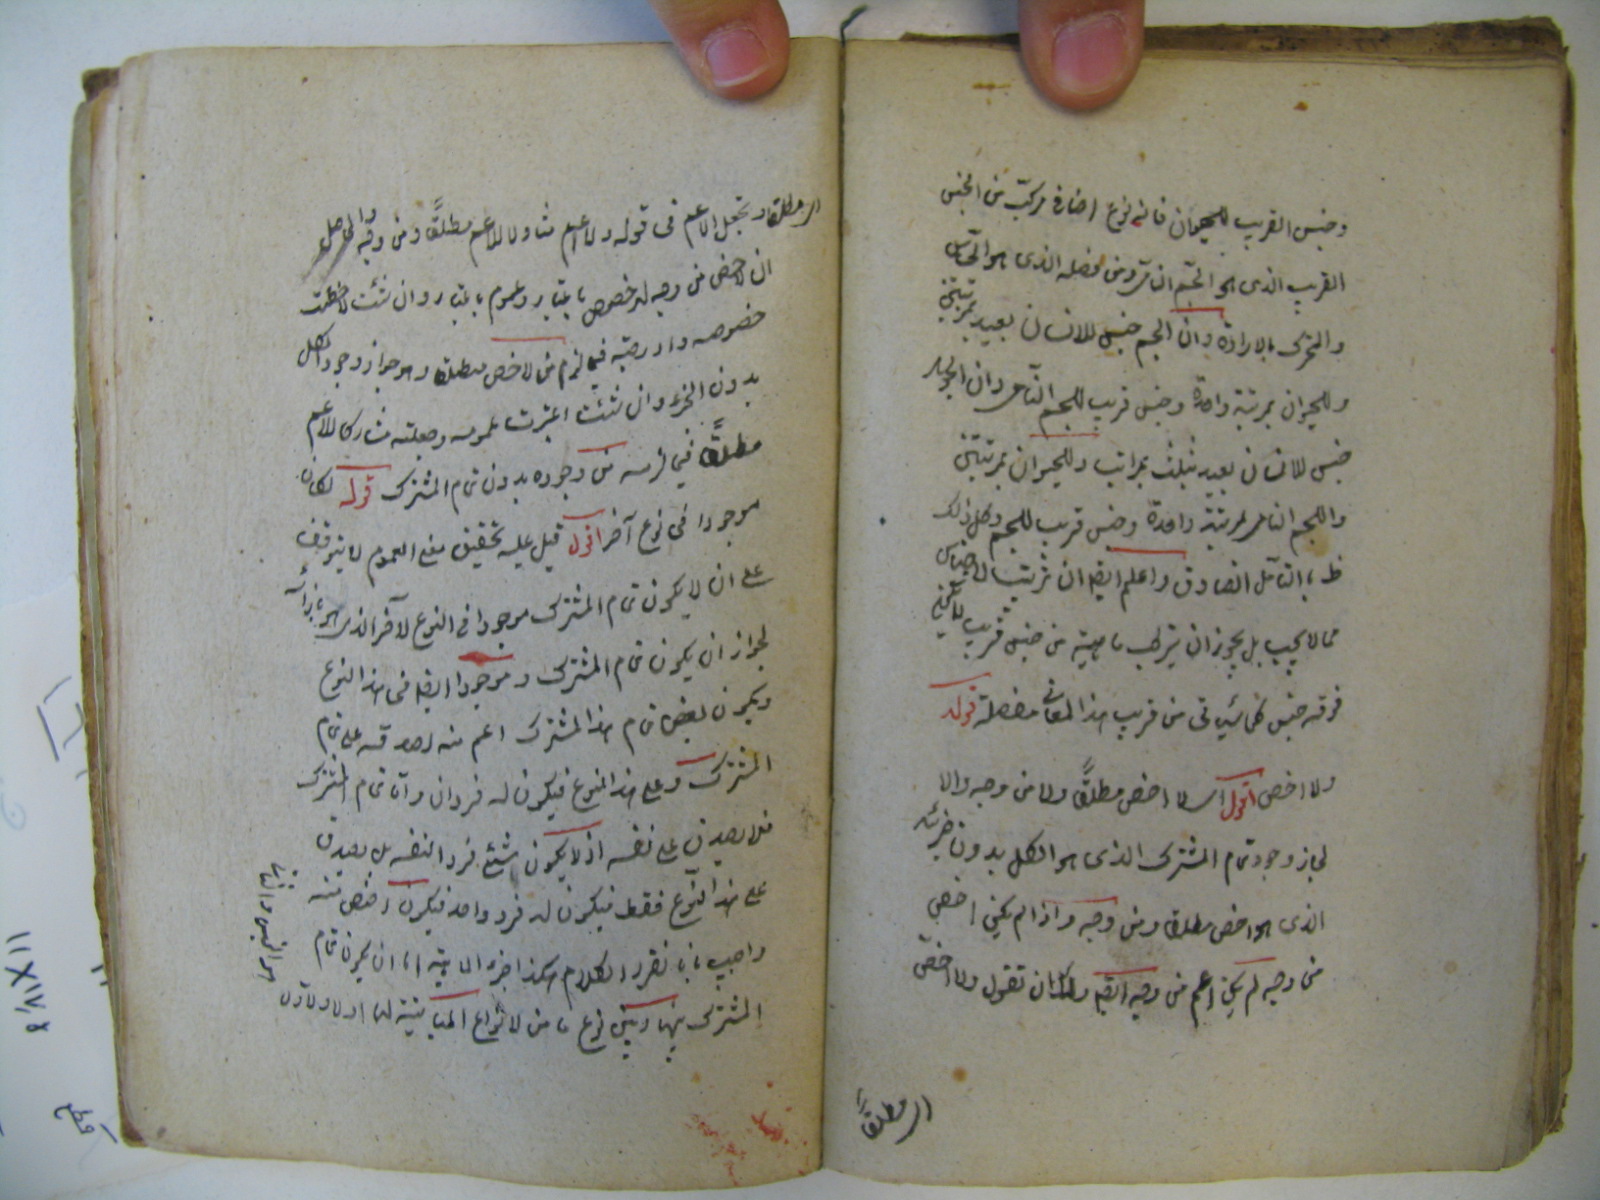 وجنس القريب للحيوان فانه نوع اضافي مركب من الجنس
القريب الذى هو الجسم النامي ومن فصله الذى هو الحساس
والمتحرك بالارادة وان الجسم جنس للانسان بعيد بمرتبتين
وللحيوان بمرتبة واحدة وجنس قريب للجسم النامى وان الجوهر
جنس للانسان بعيد بثلث مراتب وللحيوان بمرتبتين
وللجسم النامى بمرتبة واحدة وجنس قريب للجسم وكل ذلك
ظ بالتأمل الصادق واعلم ايضا ان ترتيب الاجناس
مما لا يجب بل يجوز ان يتركب ماهية من جنس قريب لا يكون
فوقه جنس كما سيأتى من قريب هذا المعانى مفصلة قوله
ولا اخص اقول اى لا اخص مطلقًا ولا من وجه والا
لجاز وجود تمام المشترك الذى هو الكل بدون جزئه
الذى هو اخص مطلقا ومن وجه واذا لم يكن اخص
من وجه لم يكن اعم من وجه ايضا ولك ان تقول ولا اخص
اى مطلقًا
اى مطلقا وتجعل الاعم فى قوله ولا اعم متناولا للاعم مطلقًا ومن وجه والحاصل
ان الاخص من وجه له خصوص باعتبار وعموم باعتبار وان شئت لاحظت
خصوصه وادرجته فيما لزم من الاخص مطلقا وهو جواز وجود الكل
بدون الجزء وان شئت اعتبرت عمومه وجعلته مشاركا للاعم
مطلقًا فى لزومه من وجوده بدون تمام المشترك قوله لكان
موجودا فى نوع آخر اقول قيل عليه تحقيق معنى العموم لا يتوقف
على ان لا يكون تمام المشترك موجودا فى النوع الآخر الذى هو بازائه
لجواز ان يكون تمام المشترك موجودا ايضا فى هذا النوع
ويكون بعض تمام هذا المشترك اعم منه لصدقه على تمام
المشترك وعلى هذا النوع فيكون له فردان واما تمام المشترك
فلا يصدق على نفسه اذ لا يكون شئ فردا لنفسه بل يصدق
على هذا النوع فقط فيكون له فرد واحد فيكون اخص منه
واجيب بانا نقرر الكلام هكذا جزء الماهية اما ان يكون تمام
المشترك بينها وبين نوع ما من الانواع المباينة لها اولا والاول